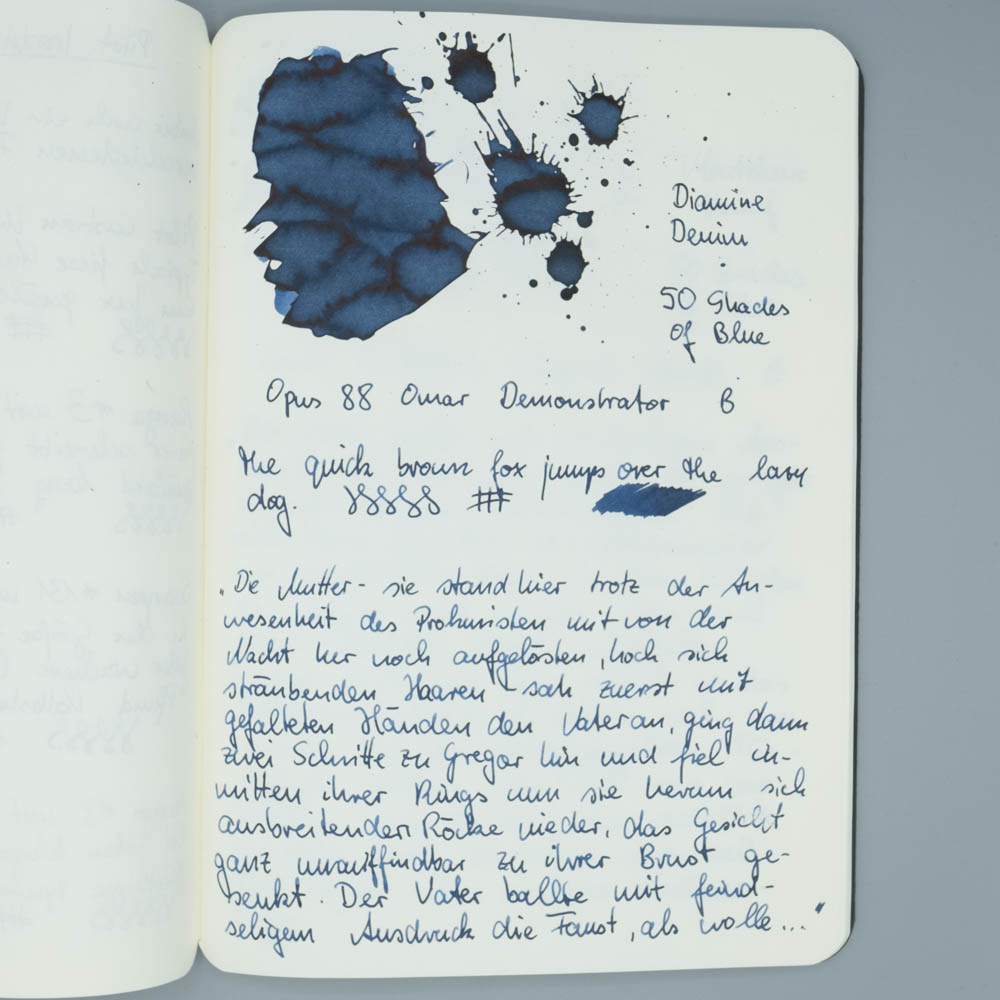 Diamine
Denim
50 Shades
of Blue
Opus 88 Omar Demonstrator B
the quick brown fox jumps over the lazy
dog.
„Die Mutter - sie stand hier trotz der An-
wesenheit des Prokuristen mit von der
Nacht her noch aufgelösten, hoch sich
sträubenden Haaren - sah zuerst mit
gefalteten Händen den Vater an, ging dann
zwei Schritte zu Gregor hin und fiel in-
mitten ihrer Rings um sie herum sich
ausbreitenden Röcke nieder, das Gesicht
ganz unauffindbar zu ihrer Brust ge-
senkt. Der Vater ballte mit feind-
seligem Ausdruck die Faust, als wolle..."